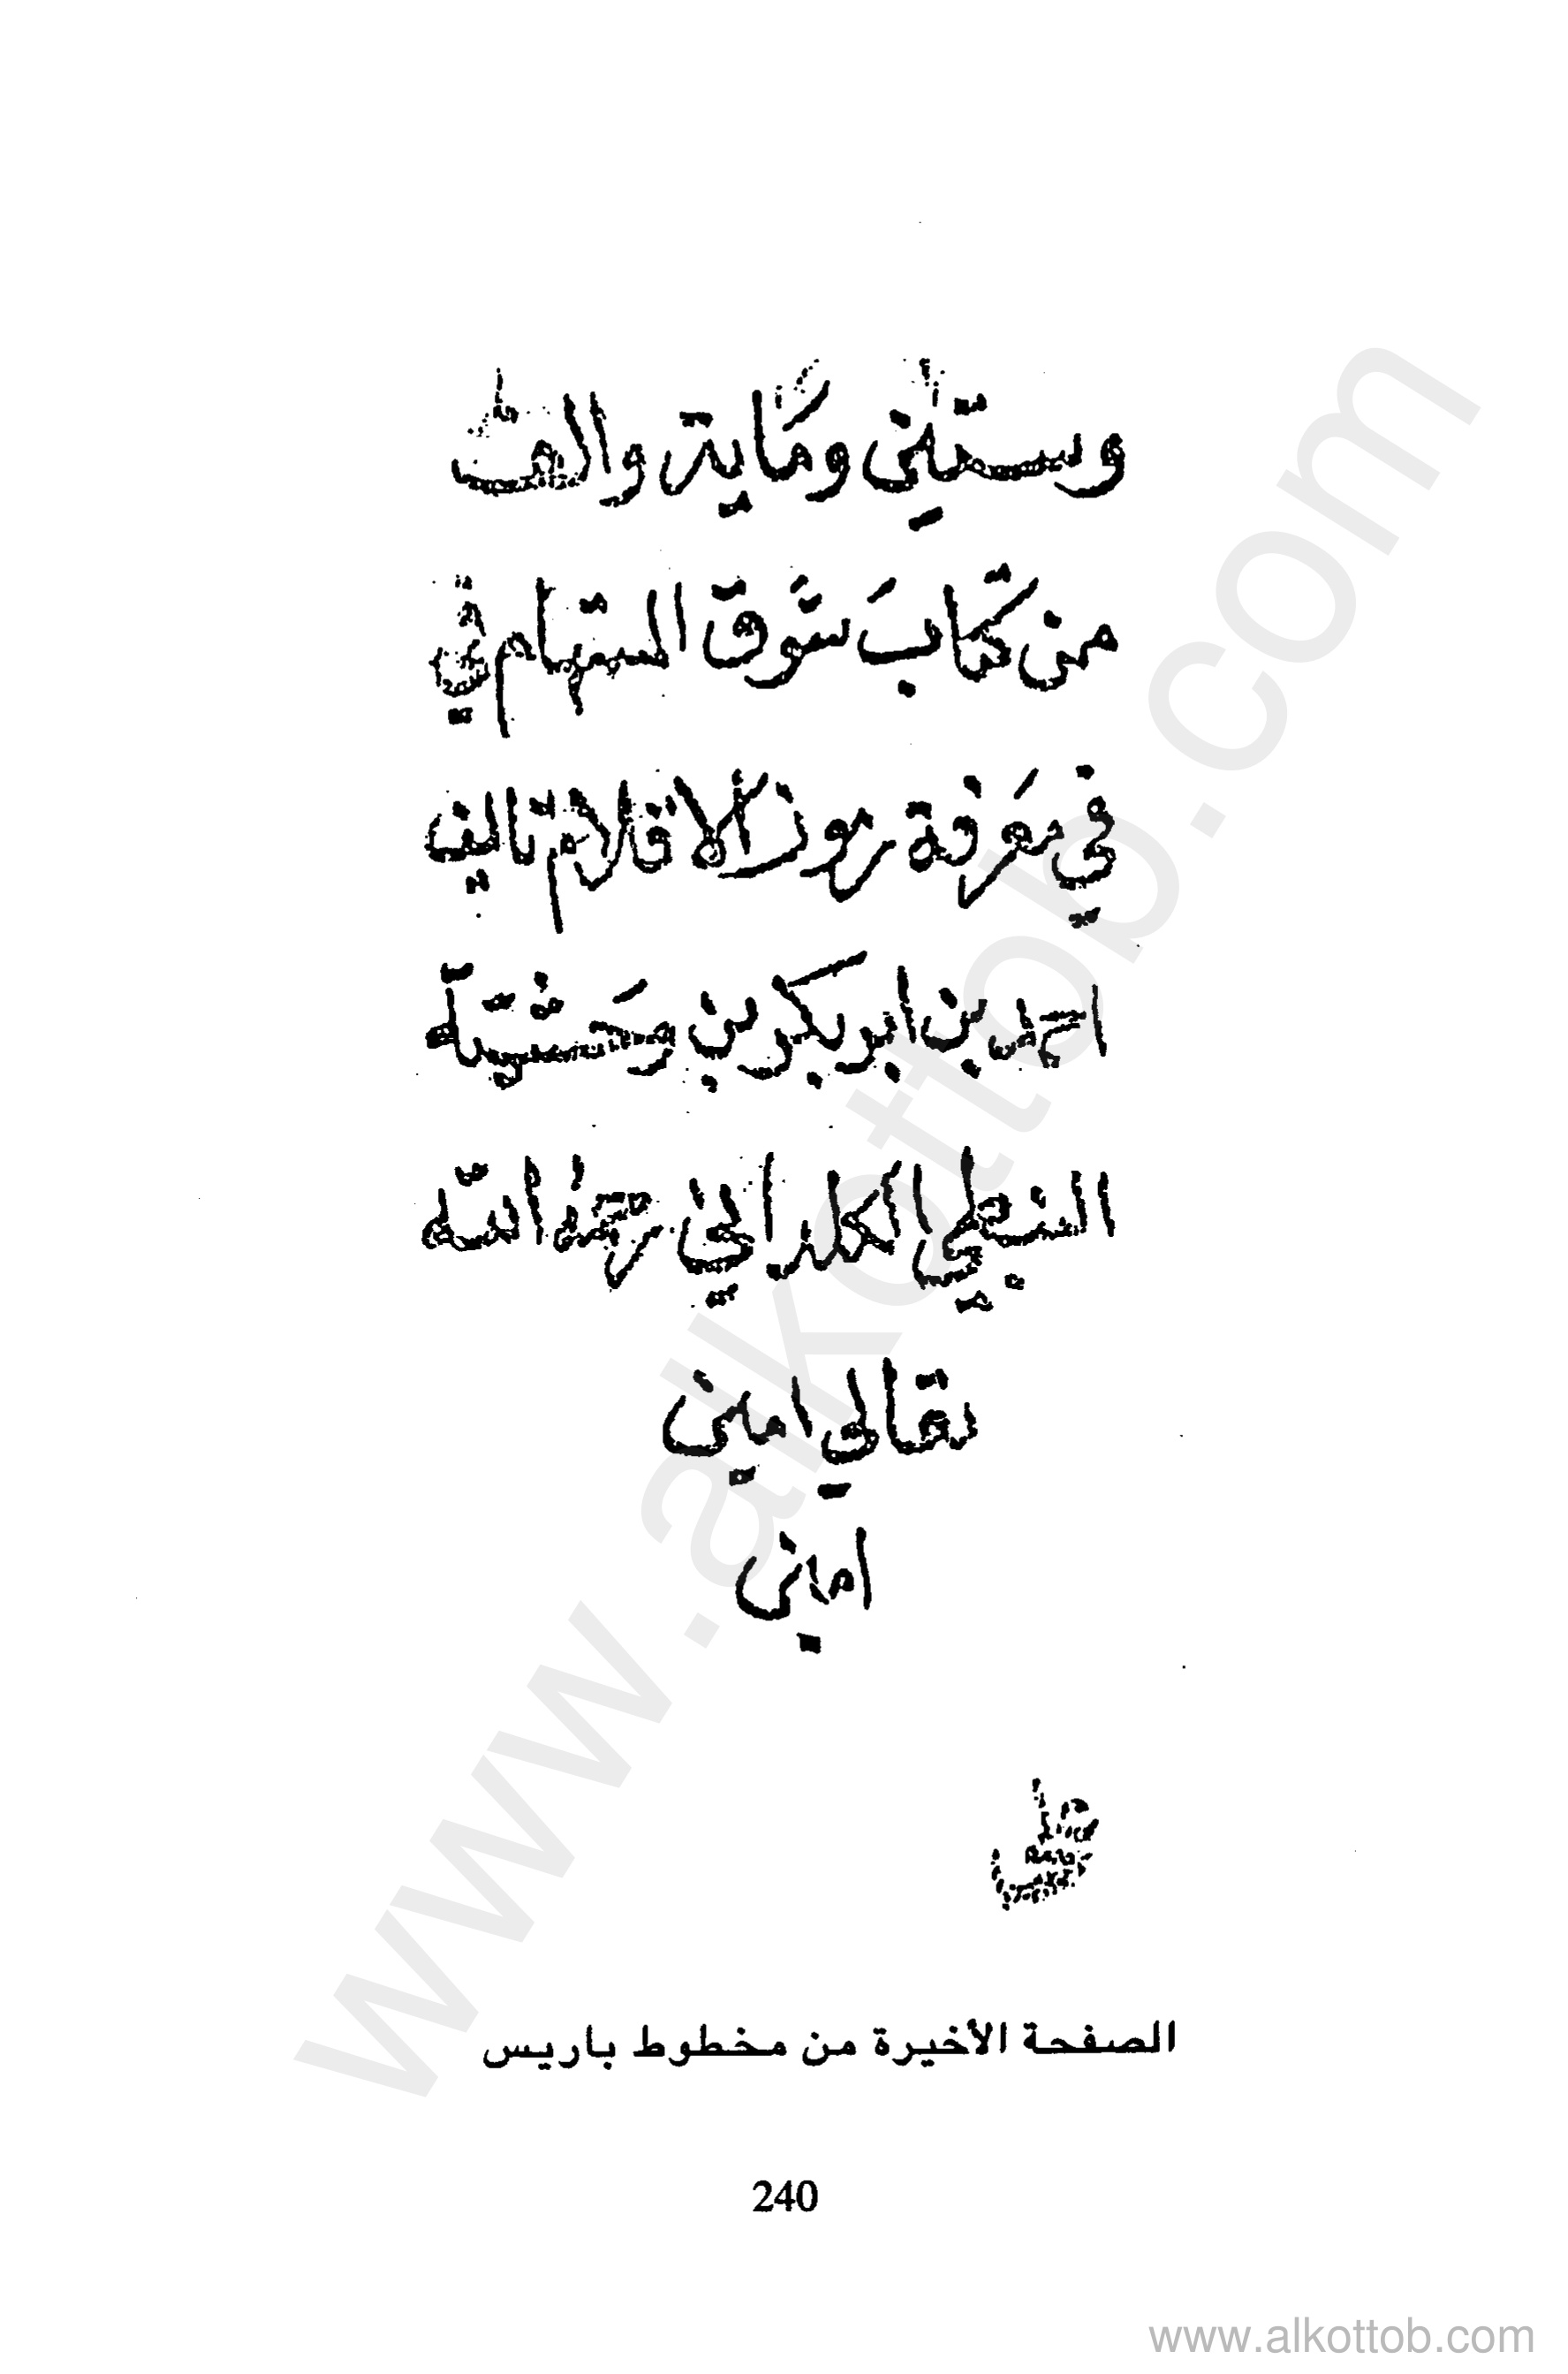 وستين وماية والف
من كتاب شوق المستهام في
في معرفة رموز الاقلام تاليف
احمد بن ابو بكر بن وحشية
النبطي الكلداني رحمه الله
تعالي امين
امين
الصفحة الأخيرة من مخطوط باريس
240
www.alkottob.com
www.alkottob.com